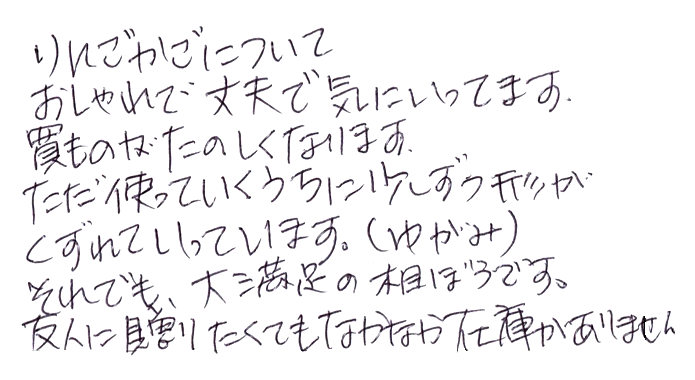 りんごかごについて
おしゃれで丈夫で気にいってます.
買ものがたのしくなります.
ただ使っていくうちに少しずつ形が
くずれていっています。(ゆがみ)
それでも、大満足の相ぼうです。
友人に贈りたくてもなかなか在庫がありません